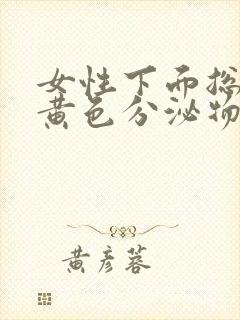 女性下而总
黄色分泌物
黄彦蓉